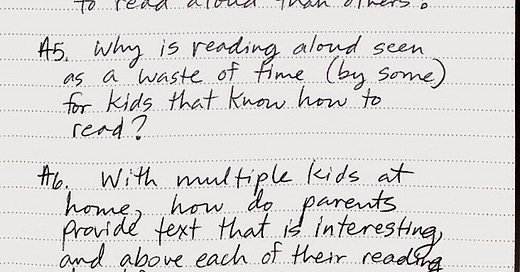 to read aloud than others?
A5. Why is reading aloud seen
as a waste of time (by some)
for kids that know how to
read?
A6. With multiple kids at
home, how do parents
provide text that is interesting,
and above each of their reading